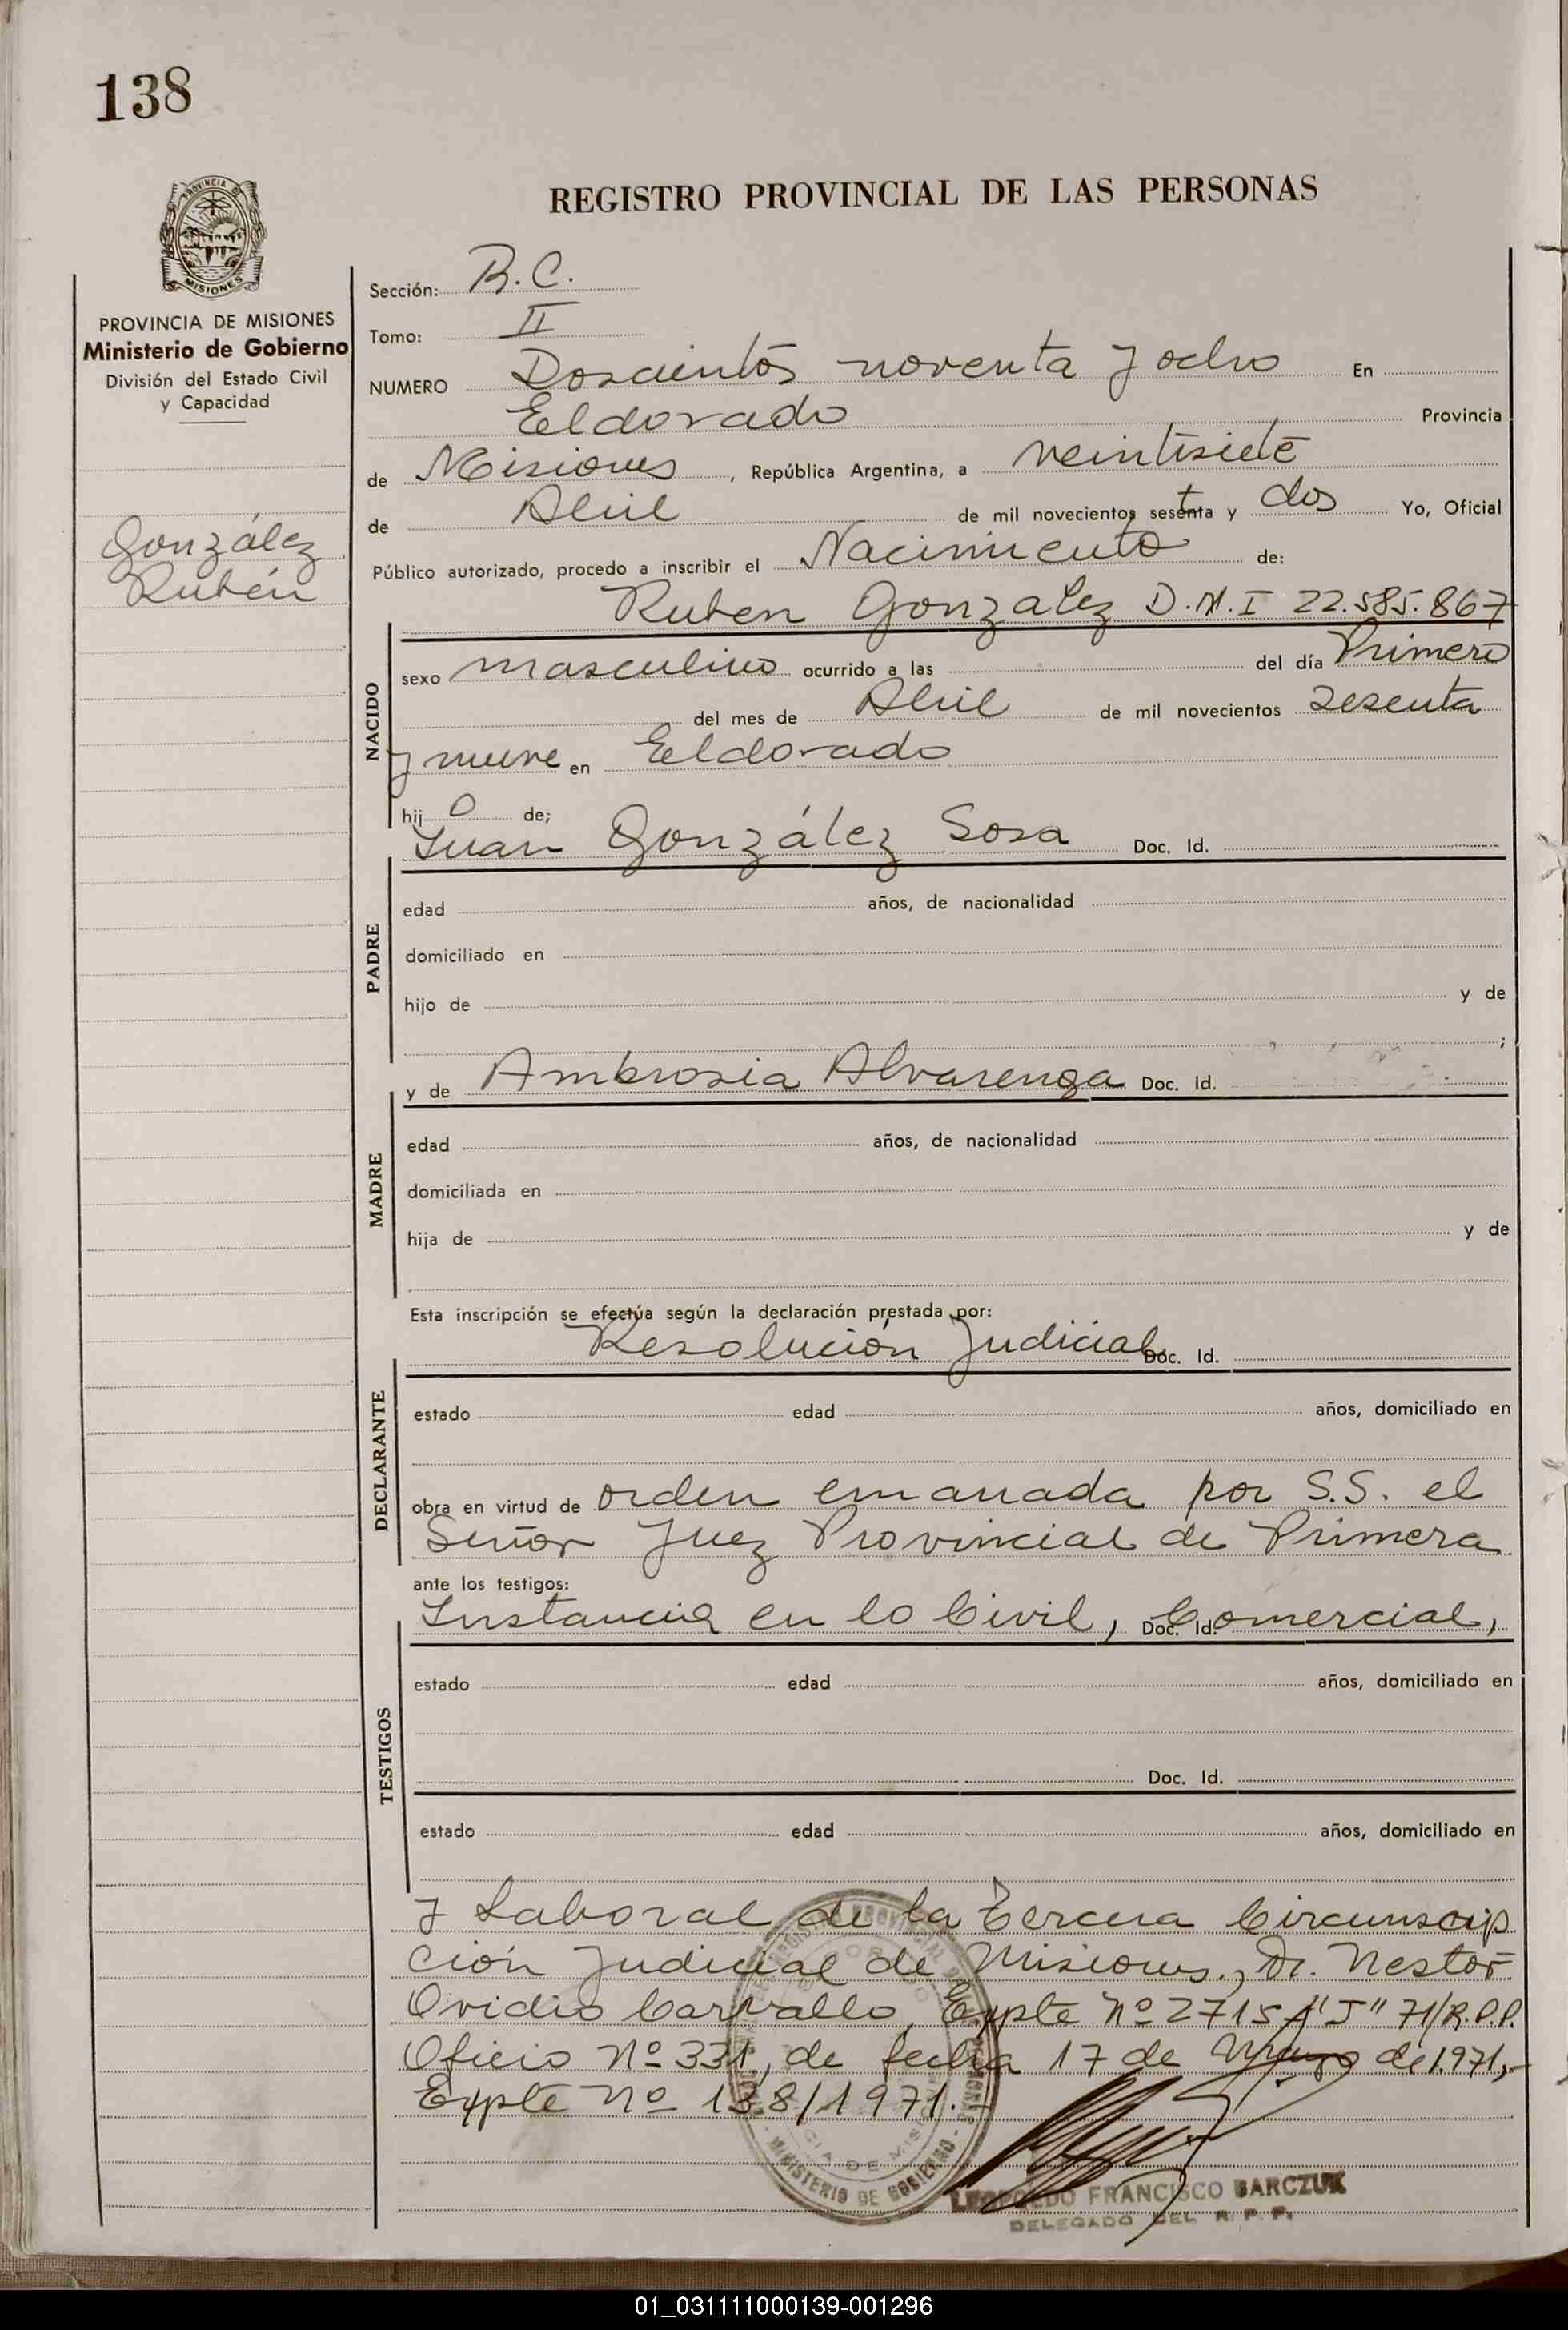 138
REGISTRO PROVINCIAL DE LAS PERSONAS
PROVINCIA DE MISIONES
Ministerio de Gobierno
División del Estado Civil
y Capacidad
González
Rubén
Sección: R.C.
Tomo: II
NUMERO Doscientos noventa y ocho En
Eldorado Provincia
de Misiones, República Argentina, a veintisiete
de Abril de mil novecientos sesenta y dos Yo, Oficial
Público autorizado, procedo a inscribir el Nacimiento de:
Ruben Gonzalez D.N.I 22.585.867
NACIDO
sexo masculino ocurrido a las del día Primero
del mes de Abril de mil novecientos sesenta
y nueve en Eldorado
hij o de;
Juan González Sosa Doc. Id.
PADRE
edad años, de nacionalidad
domiciliado en
hijo de y de
;
y de Ambrosia Alvarenga Doc. Id.
MADRE
edad años, de nacionalidad
domiciliada en
hija de y de
Esta inscripción se efectúa según la declaración prestada por:
Resolución Judicial Doc. Id.
DECLARANTE
estado edad años, domiciliado en
obra en virtud de orden emanada por S.S. el
Señor Juez Provincial de Primera
ante los testigos:
Instancia en lo Civil, Comercial, Doc. Id.
TESTIGOS
estado edad años, domiciliado en
Doc. Id.
estado edad años, domiciliado en
y Laboral de la Tercera Circunscrip
ción Judicial de Misiones, Dr. Nestor
Ovidio Carvallo, Expte Nº 2715 "J" 71/R.P.P.
Oficio Nº 331, de fecha 17 de de 1.971,-
Expte Nº 138/1971.-
MINISTERIO DE GOBIERNO
LEOPOLDO FRANCISCO BARCZUK
DELEGADO DEL R. P. P.
01_031111000139-001296